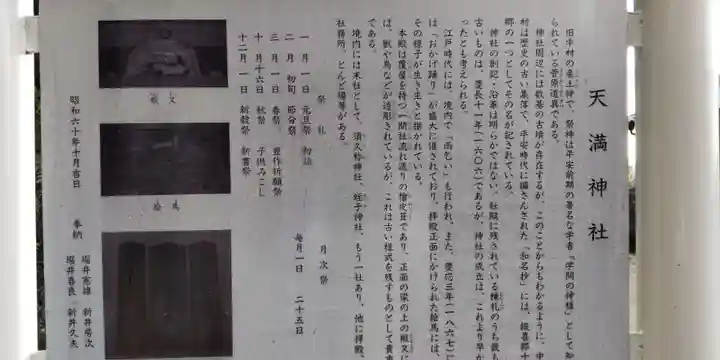 天満神社
旧幸村の産土神で、祭神は平安前期の著名な学者「学問の神様」として知
られている菅原道真である。
神社周辺には数基の古墳が存在するが、このことからもわかるように、
村は歴史の古い集落で、平安時代に編さんされた「和名抄」には、
郷の一つとしてその名が記されている。
神社の創記・沿革は明らかではない。社殿に残されている棟札のうち最も
古いものは、慶長十一年(一六〇六)であるが、神社の成立は、これより早か
ったとも考えられる。
江戸時代には、境内で「雨乞い」も行われ、また、慶応三年(一八六七)に
は「おかげ踊り」が盛大に催されており、拝殿正面にかけられた絵馬には、
その様子が生き生きと描かれている。
本殿は覆屋を持つ一間社流れ造りの檜皮葺であり、正面の梁の上の蟇又に
は、獣や鳥などが透彫されているが、これは古い様式を残すものとして貴重
である。
境内には末社として、須久称神社、蛭子神社、もう一社あり、他に拝殿、
社務所、とんど場等がある。
祭礼
一月一日 元旦祭 初詣
二月初旬 節分祭
三月一日 春祭 豊作祈願祭
十月十六日 秋祭 子供みこし
十二月一日 新穀祭 新嘗祭
月次祭
毎月一日 二十五日
昭和六十年十月吉日
奉納
堀井憲雄 新井房次
堀井喜良 新井久夫
蟇又
絵馬